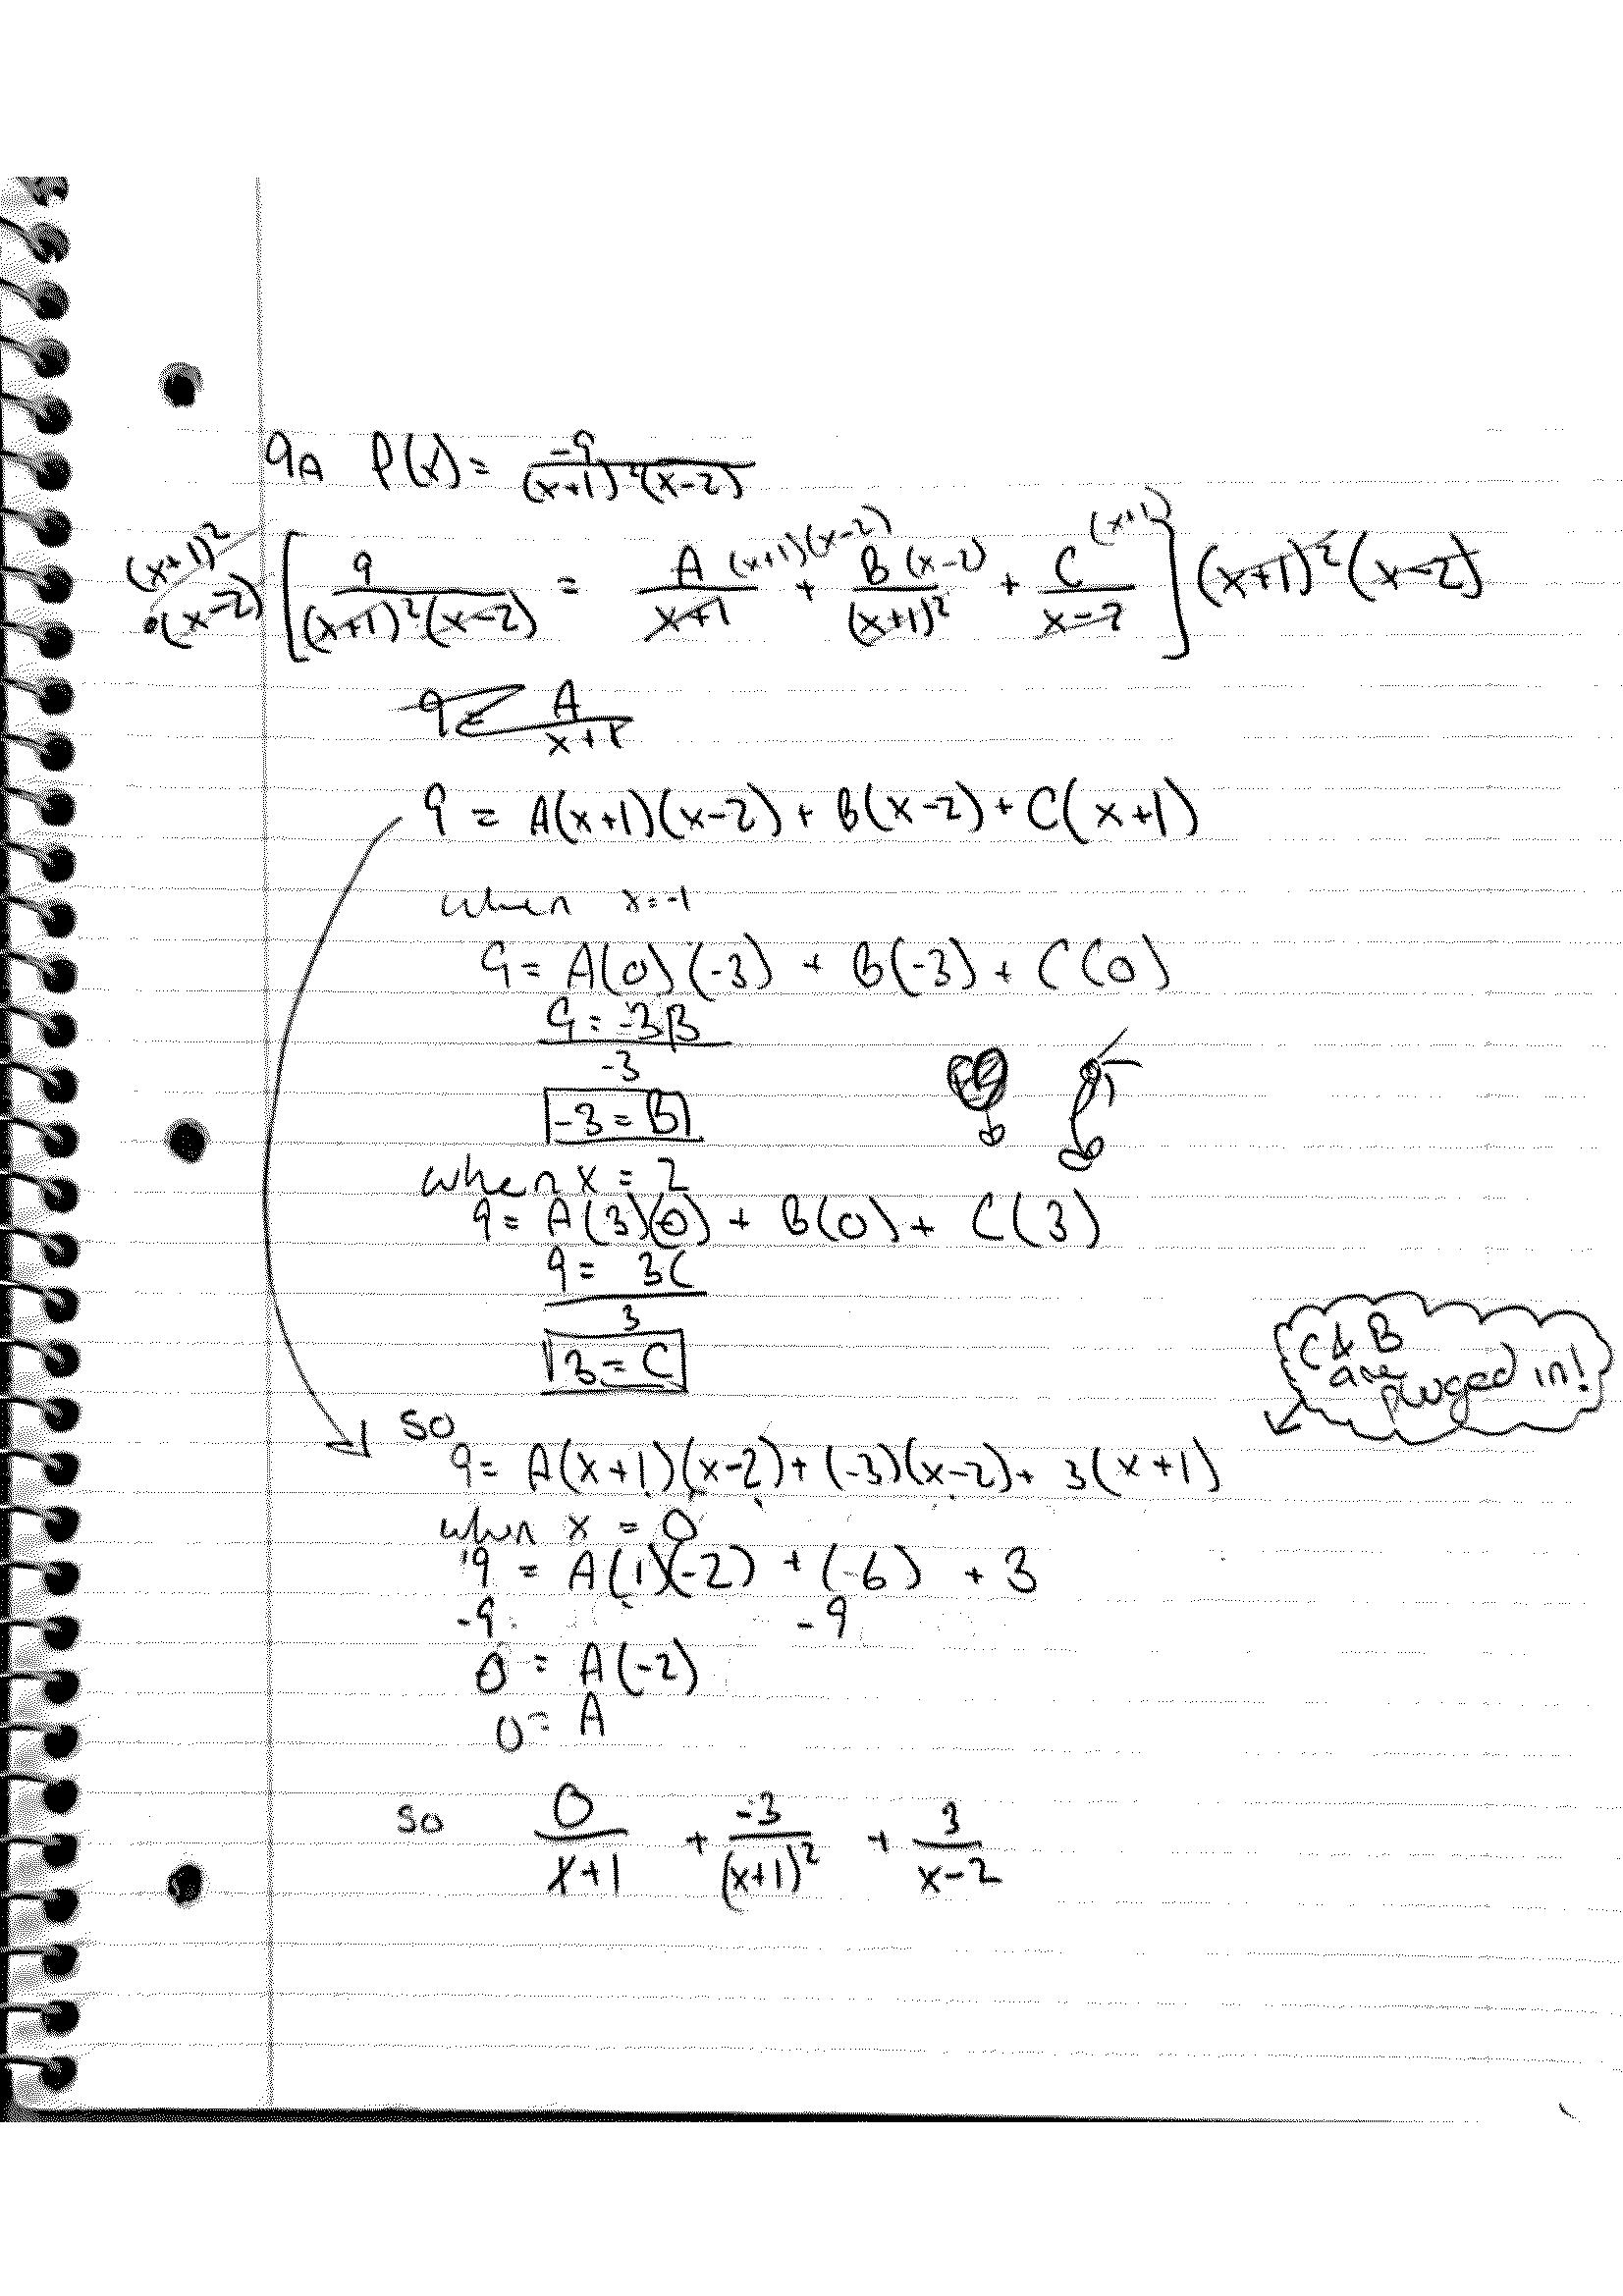 9A P(x) = -9/((x+1)²(x-2))
(x+1)²·(x-2) [ 9/((x+1)²(x-2)) = A/(x+1) (x+1)(x-2) + B/(x+1)² (x-2) + C/(x-2) (x+1) ] (x+1)²(x-2)
9 = A/(x+1)
9 = A(x+1)(x-2) + B(x-2) + C(x+1)
when x=-1
9 = A(0)(-3) + B(-3) + C(0)
9 = -3B
-3
-3 = B
when x = 2
9 = A(3)(0) + B(0) + C(3)
9 = 3C
3
3 = C
C & B
are
pluged in!
so
9 = A(x+1)(x-2) + (-3)(x-2) + 3(x+1)
when x = 0
9 = A(1)(-2) + (-6) + 3
-9 -9
0 = A(-2)
0 = A
so 0/(x+1) + -3/(x+1)² + 3/(x-2)